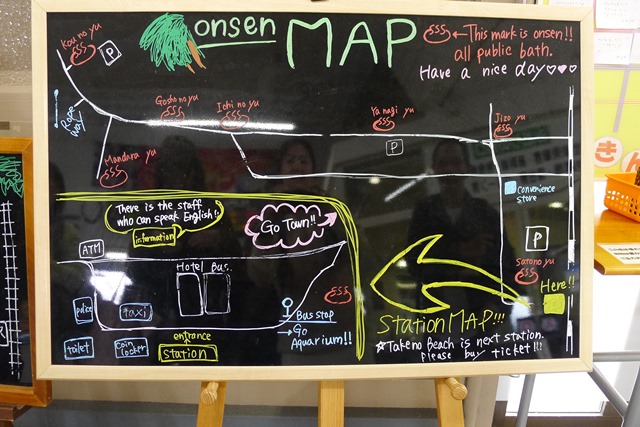 onsen MAP
←This mark is onsen!!
all public bath.
Have a nice day♡♡♡
Kou no yu
P
Rope way
Mandara yu
Gosho no yu
Ichi no yu
Yanagi yu
P
Jizo yu
convenience store
P
Satono yu
Here!!
There is the staff
who can speak English!!
information
Go Town!!
ATM
Hotel Bus.
police
taxi
toilet
coin locker
entrance
station
Bus stop
→Go
Aquarium!!
Station MAP!!!
☆Takeno Beach is next station.
please buy ticket!!!
き